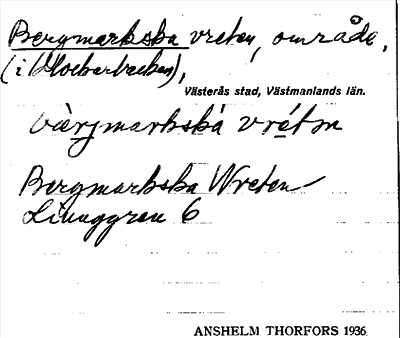 Bergmarkska vreten, område,
(i Klockartorpen),
Västerås stad, Västmanlands län.
bärjmarkska vretn
Bergmarkska Wreten
Ljunggren 6
ANSHELM THORFORS 1936